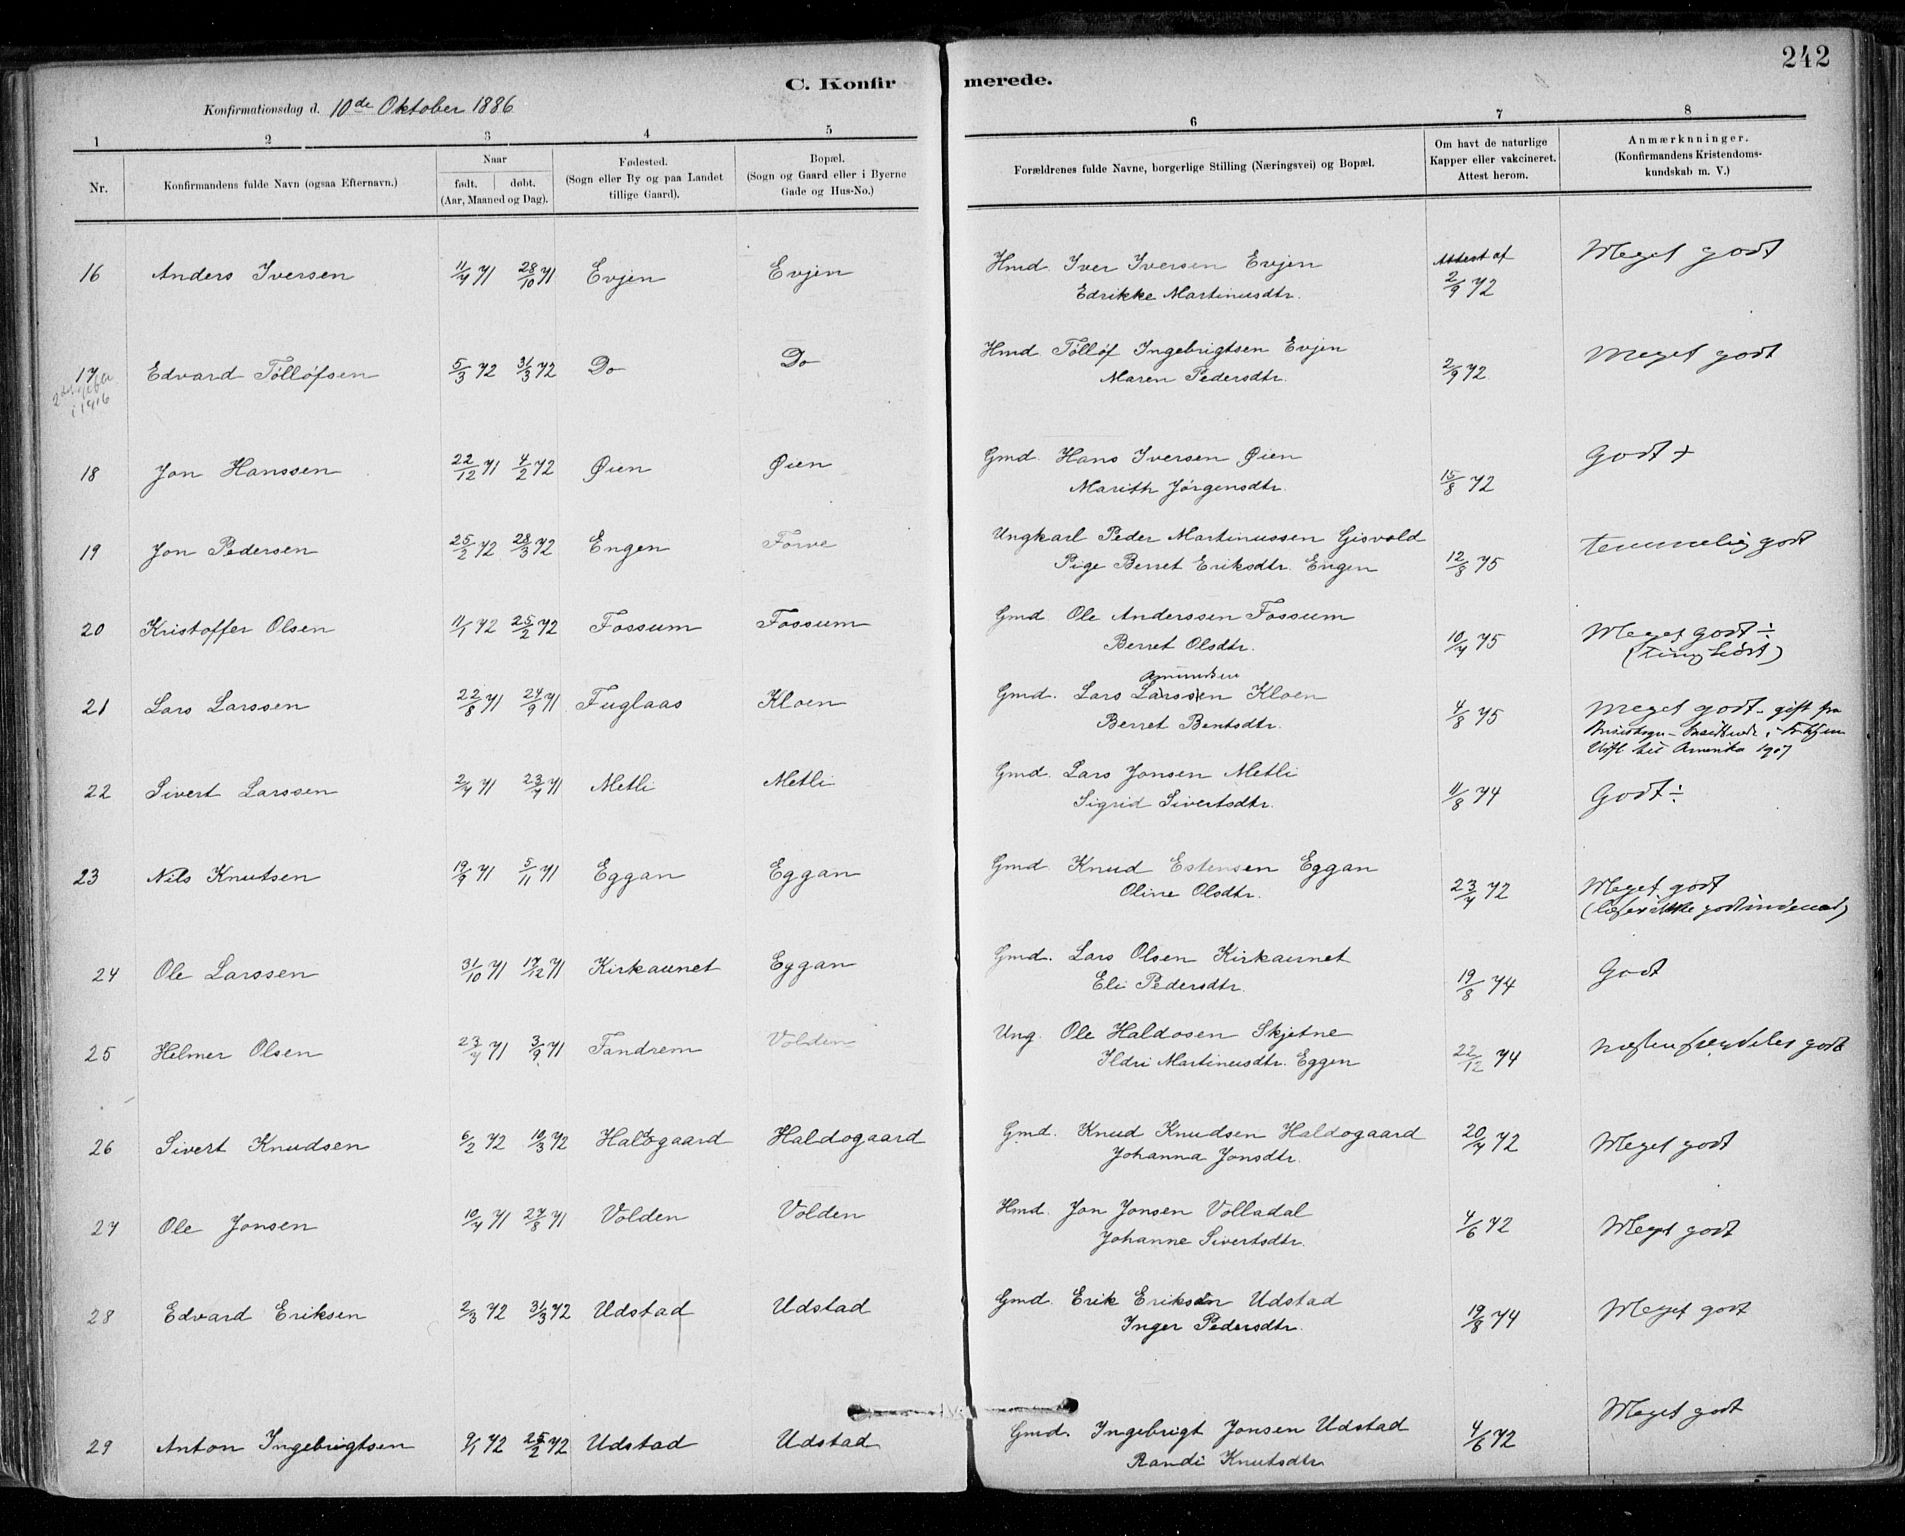 242
C. Konfirmerede.
Konfirmationsdag d. 10de Oktober 1886
1 2 3 4 5 6 7 8
Nr. Konfirmandens fulde Navn (ogsaa Efternavn.) Naar født. døbt. (Aar, Maaned og Dag). Fødested. (Sogn eller By og paa Landet tillige Gaard). Bopæl. (Sogn og Gaard eller i Byerne Gade og Hus-No.) Forældrenes fulde Navne, borgerlige Stilling (Næringsvei) og Bopæl. Om havt de naturlige Kapper eller vakcineret. Attest herom. Anmærknninger. (Konfirmandens Kristendomskundskab m. V.)
16 Anders Iversen 11/4 71 28/10 71 Evjen Evjen Hmd. Iver Iversen Evjen Attest af 2/9 72 Meget godt
Edrikke Martinusdtr.
17 Edvard Tölløfsen 5/3 72 31/3 72 Do Do Hmd. Tölløf Ingebrigtsen Evjen 2/9 72 Meget godt
i 1916 Maren Pedersdtr.
18 Jon Hanssen 22/12 71 4/2 72 Øien Øien Gmd. Hans Iversen Øien 15/8 72 Godt +
Marith Jørgensdtr.
19 Jon Pedersen 25/2 72 28/3 72 Engen Forve Ungkarl Peder Martinussen Gisvold 12/8 75 temmelig godt
Pige Berret Eriksdtr. Engen
20 Kristoffer Olsen 11/1 72 25/2 72 Fossum Fossum Gmd Ole Anderssen Fossum 10/4 75 Meget godt ÷
Berret Olsdtr.
Amundsen
21 Lars Larssen 22/8 71 24/9 71 Fuglaas Kloen Gmd. Lars Larssen Kloen 4/8 75 Meget godt - gift fra
Berret Bentsdtr.
Udfl. til Amerika 1907
22 Sivert Larssen 2/4 71 23/4 71 Metli Metli Gmd. Lars Jonsen Metli 11/8 74 Godt ÷
Sigrid Sivertsdtr.
23 Nils Knutsen 19/9 71 5/11 71 Eggan Eggan Gmd Knud Estensen Eggan 23/4 72 Meget godt
Oline Olsdtr. (læser ikke godt indenad)
24 Ole Larssen 31/10 71 17/12 71 Kirkaunet Eggan Gmd. Lars Olsen Kirkaunet 19/8 74 Godt
Eli Pedersdtr.
25 Helmer Olsen 23/4 71 3/9 71 Tandrem Volden Ung. Ole Haldosen Skjetne 22/12 74 næsten fremdeles godt
Ildri Martinusdtr. Eggen
26 Sivert Knudsen 6/2 72 10/3 72 Haldogaard Haldogaard Gmd. Knud Knudsen Haldogaard 20/4 72 Meget godt
Johanna Jonsdtr.
27 Ole Jonsen 10/4 71 27/8 71 Volden Volden Hmd. Jon Jonsen Volladal 4/6 72 Meget godt
Johanne Sivertsdtr.
28 Edvard Eriksen 2/3 72 31/3 72 Udstad Udstad Gmd. Erik Eriksen Udstad 19/8 74 Meget godt
Inger Pedersdtr.
29 Anton Ingebrigtsen 9/1 72 25/2 72 Udstad Udstad Gmd. Ingebrigt Jonsen Udstad 4/6 72 Meget godt
Randi Knutsdtr.